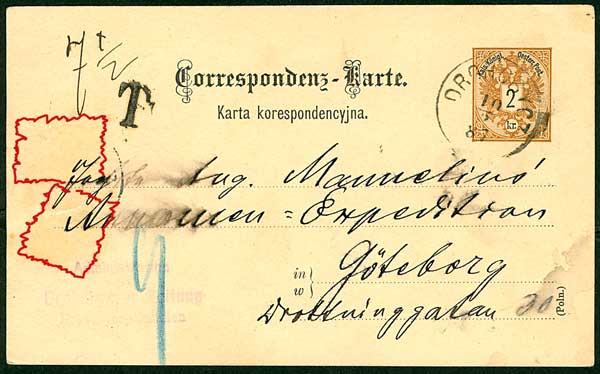 7 1/2
T
Correspondenz-Karte.
Karta korespondencyjna.
Kais. Königl. Oesterr. Post.
2
kr.
DRO
10
83
Aug. Mannelins'
Annoncen = Expedition
in
w
Göteborg
Drottninggatan 30
(Poln.)
9